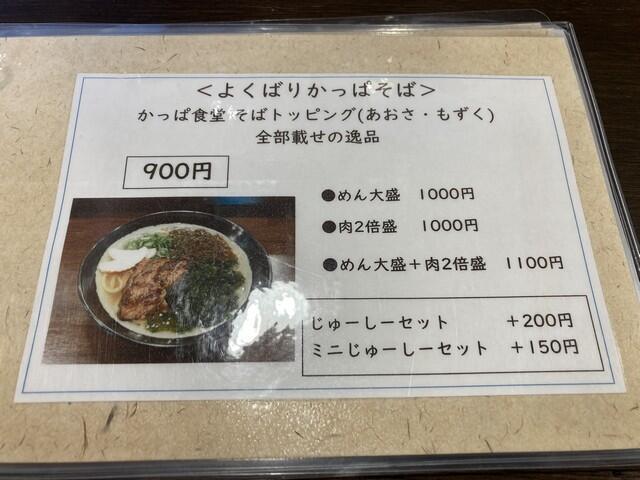 ＜よくばりかっぱそば＞
かっぱ食堂 そばトッピング(あおさ・もずく)
全部載せの逸品
900円
●めん大盛 1000円
●肉2倍盛 1000円
●めん大盛＋肉2倍盛 1100円
じゅーしーセット ＋200円
ミニじゅーしーセット ＋150円